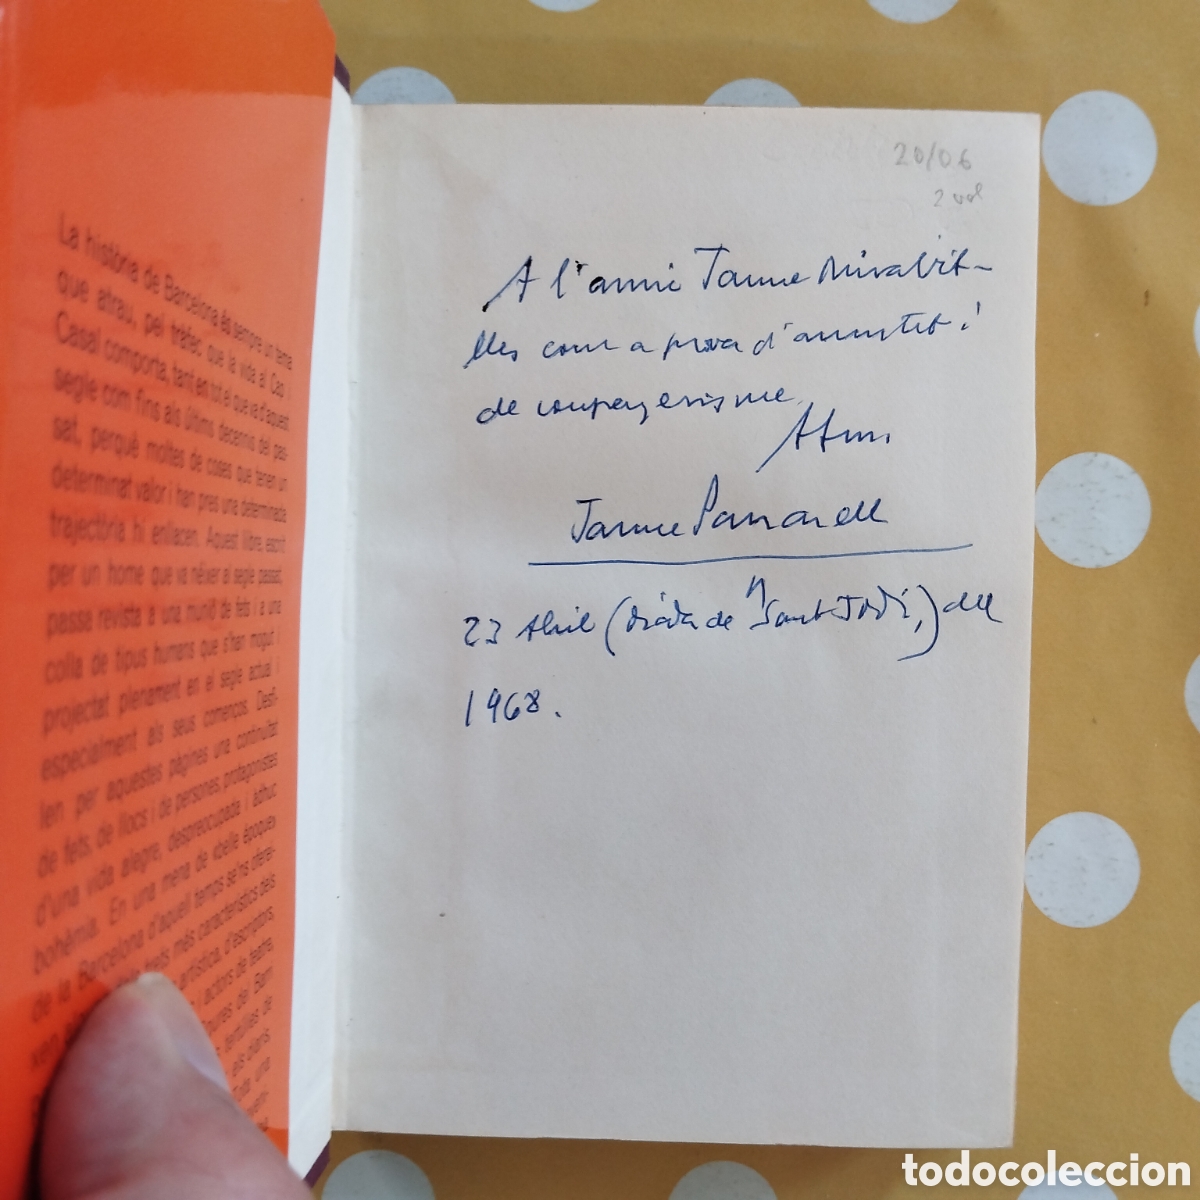 La història de Barcelona és sempre un tema
que atrau, pel tràfec que la vida al Cap i
Casal comporta, tant en tot el que va d'aquest
segle com fins als últims decennis del pas-
sat, perquè moltes de coses que tenen un
determinat valor i han pres una determinada
trajectòria hi enllacen. Aquest llibre, escrit
per un home que va néixer al segle passat,
passa revista a una munió de fets i a una
colla de tipus humans que s'han mogut i
projectat plenament en el segle actual i
especialment als seus començos. Desfi-
len per aquestes pàgines una continuïtat
de fets, de llocs i de persones, protagonistes
d'una vida alegre, despreocupada i àdhuc
bohèmia. En una mena de «belle époque»
de la Barcelona d'aquell temps se'ns oferei-
xen trets més característics dels
artística, d'escriptors,
i actors de teatre,
del Barri
tertúlies de
els diaris
Tota una
20/06
2 vol
A l'amic Jaume Miravit-
lles com a prova d'amistat i
de companyerisme.
Atm.
Jaume Passarell
23 Abril (diada de Sant Jordi,) del
1968.
todocoleccion